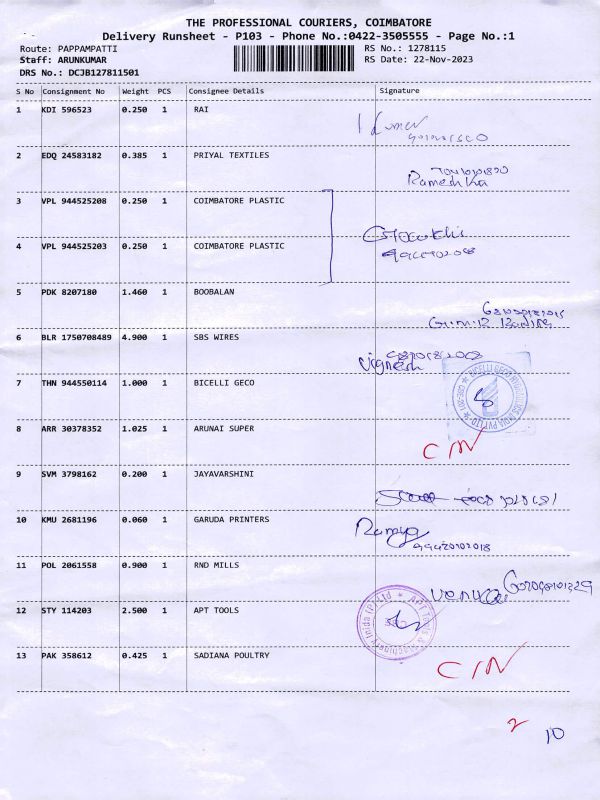 THE PROFESSIONAL COURIERS, COIMBATORE
Delivery Runsheet - P103 - Phone No.:0422-3505555 - Page No.:1
Route: PAPPAMPATTI RS No.: 1278115
Staff: ARUNKUMAR RS Date: 22-Nov-2023
DRS No.: DCJB127811501
S No Consignment No Weight PCS Consignee Details Signature
1 KDI 596523 0.250 1 RAI
2 EDQ 24583182 0.385 1 PRIYAL TEXTILES
Ramesh
3 VPL 944525208 0.250 1 COIMBATORE PLASTIC
4 VPL 944525203 0.250 1 COIMBATORE PLASTIC
5 PDK 8207180 1.460 1 BOOBALAN
6 BLR 1750708489 4.900 1 SBS WIRES
Vignesh
7 THN 944550114 1.000 1 BICELLI GECO
8 ARR 30378352 1.025 1 ARUNAI SUPER
C/N
9 SVM 3798162 0.200 1 JAYAVARSHINI
10 KMU 2681196 0.060 1 GARUDA PRINTERS
Ramya
11 POL 2061558 0.900 1 RND MILLS
12 STY 114203 2.500 1 APT TOOLS
13 PAK 358612 0.425 1 SADIANA POULTRY
C/N
2 10